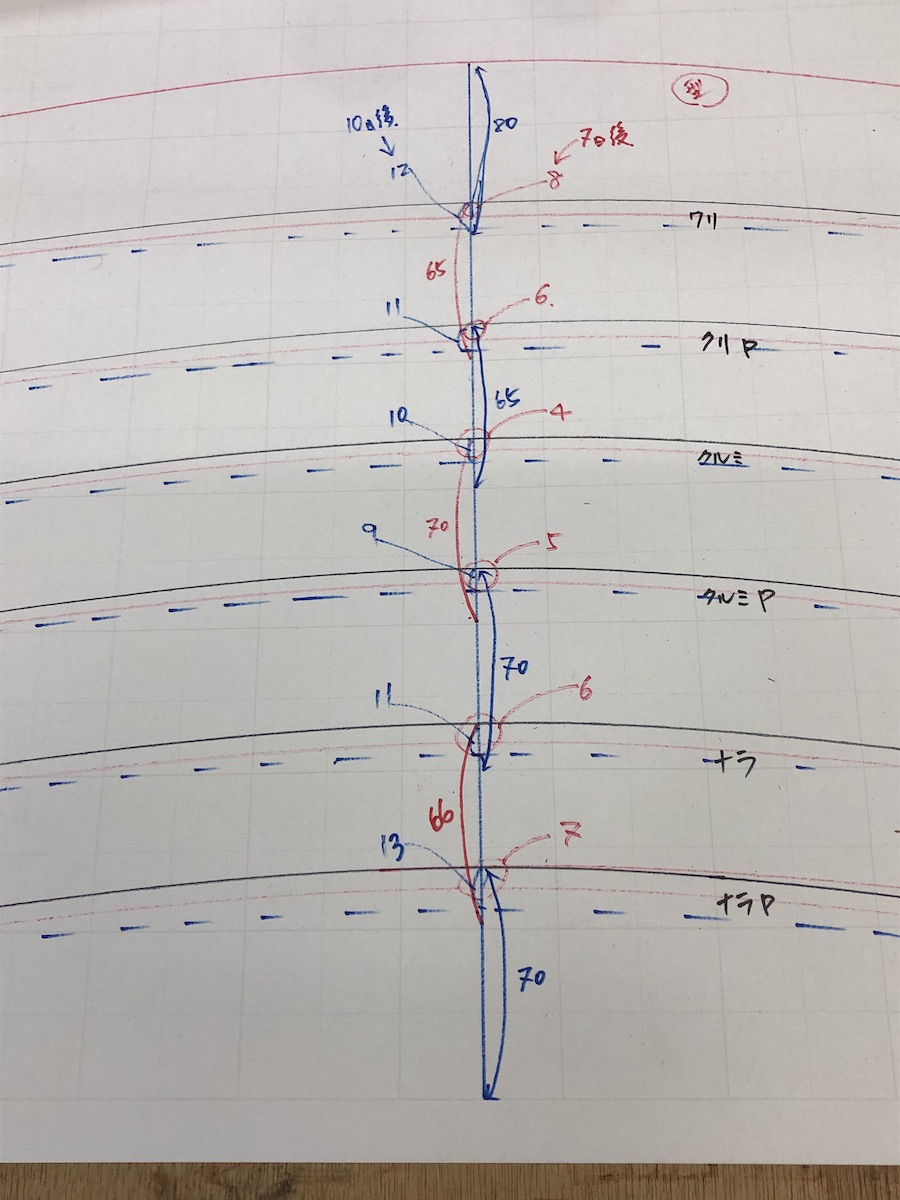 10日後
80
7日後
12
8
クリ
65
11
6
クリP
65
10
4
クルミ
70
9
5
クルミP
70
11
6
ナラ
66
13
7
ナラP
70